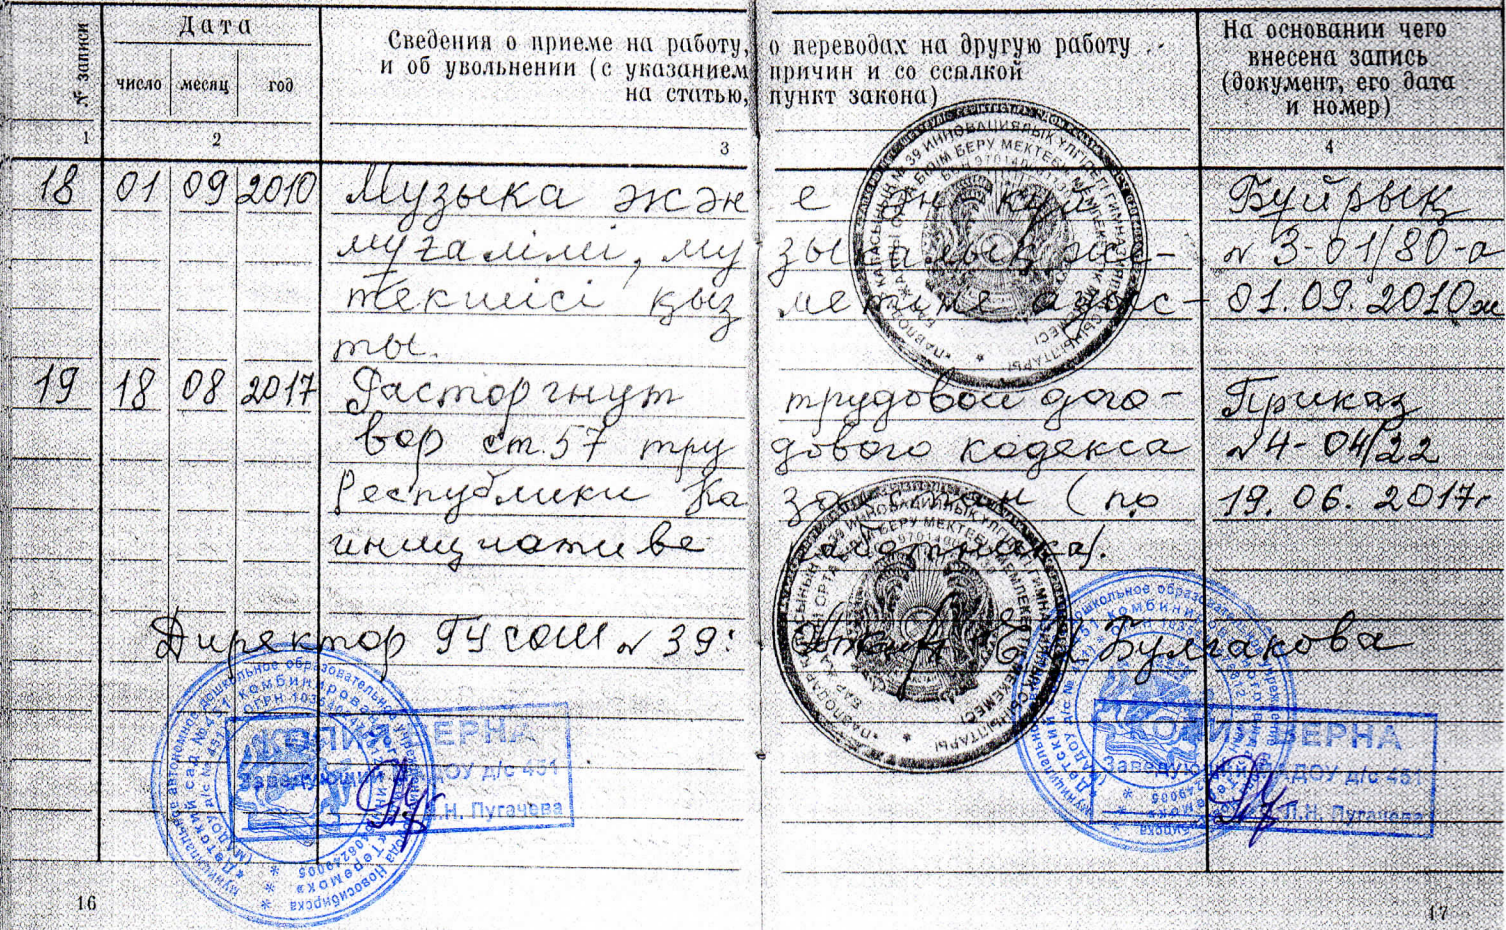 № записи
Дата
число месяц год
Сведения о приеме на работу, о переводах на другую работу
и об увольнении (с указанием причин и со ссылкой
на статью, пункт закона)
На основании чего
внесена запись
(документ, его дата
и номер)
1 2 3 4
18 01 09 2010 Музыка және ән күй Бұйрық
мұғалімі, музыкалық же- № 3-01/80-а
текшісі қызметіне ауыс- 01.09.2010ж
ты.
19 18 08 2017 Расторгнут трудовой дого- Приказ
вор ст.57 трудового кодекса №4-04/22
Республики Казахстан (по 19.06.2017г
инициативе работника).
Директор ГУ СОШ №39: Булгакова
КОПИЯ ВЕРНА
Заведующий МАДОУ д/с 451
Л.Н. Пугачева
КОПИЯ ВЕРНА
Заведующий МАДОУ д/с 451
Л.Н. Пугачева
16
17